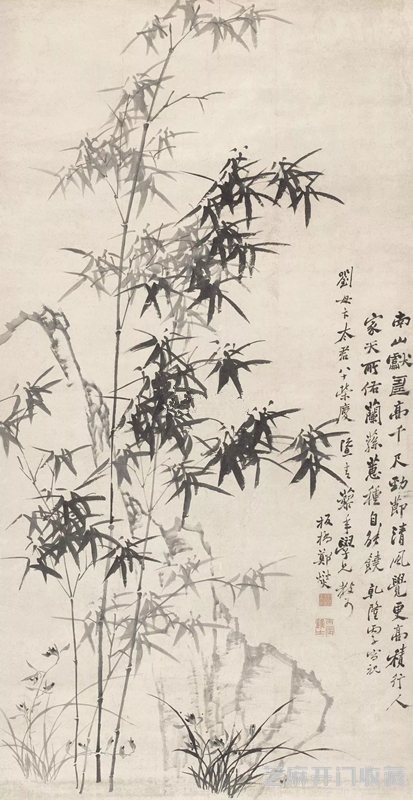 南山獻壽高千尺勁節清風覺更高積行人
家天所佑蘭蓀蕙種自能饒乾隆丙子寫祝
劉母卞太君八十榮慶暨青藜年學兄教可
板橋鄭燮
芝麻开门收藏